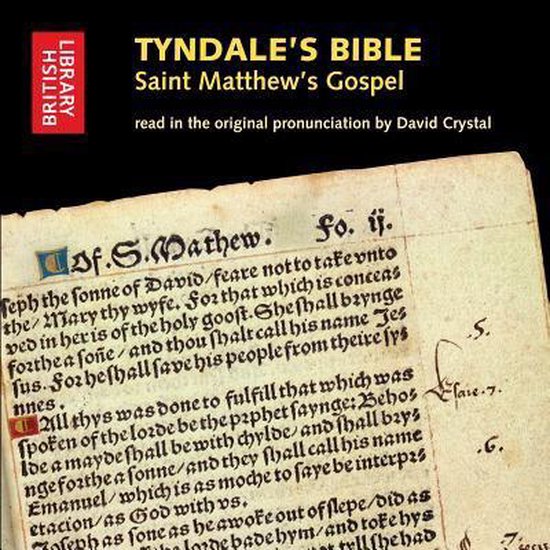 BRITISH
LIBRARY
TYNDALE'S BIBLE
Saint Matthew's Gospel
read in the original pronunciation by David Crystal
Of.S.Mathew. Fo. ij.
seph the sonne of David/feare not to take vnto
the/Mary thy wyfe. For that which is concea-
ved in her is of the holy goost. She shall brynge
forthe a soñe/and thou shalt call his name Je-
sus. For he shall save his people from theire sy-
nnes.
All thys was done to fulfill that which was
spoken of the lorde be the prphet saynge: Beho-
lde a mayde shall be with chylde/and shall bry-
nge forthe a sonne/and they shall call his name
Emanuel/which is as moche to saye be interpr-
etacion/as God with vs.
Joseph as sone as he awoke out of slepe/did as
the lorde bade hym/and toke hys
not tyll she had
.5.
Esaie.7.
.6.
.7.